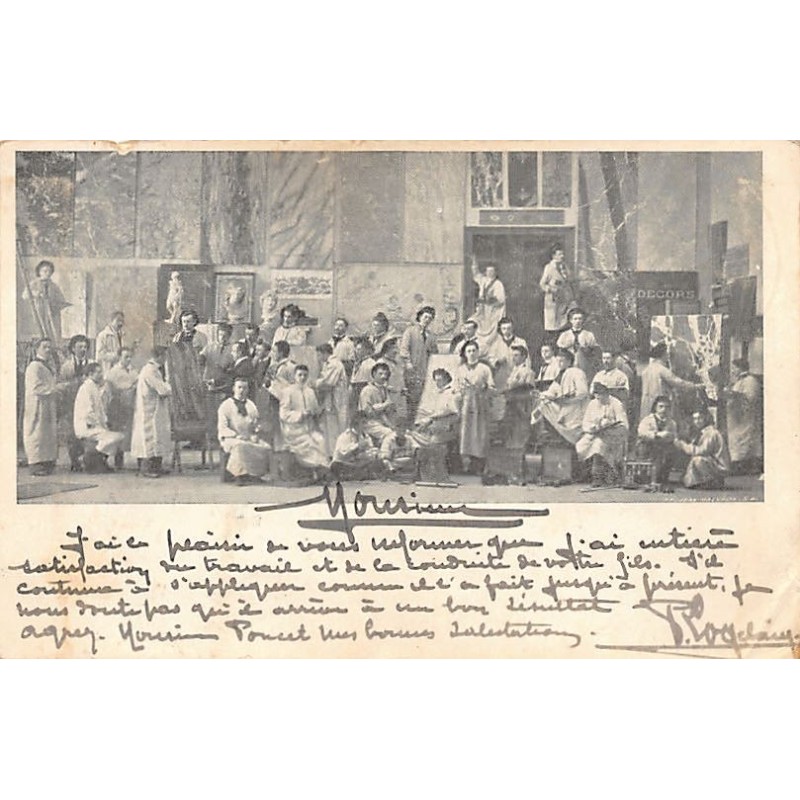 DECORS
Monsieur
J'ai le plaisir de vous informer que j'ai entière
satisfaction du travail et de la conduite de votre fils. S'il
continue à s'appliquer comme il l'a fait jusqu'à présent, je
nous doute pas qu'il arrive à un bon résultat
agréez. Monsieur Poncet mes bonnes salutations.